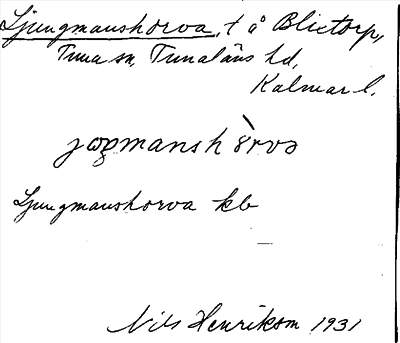 Ljungmanshorva, t å Blixtorp,
Tuna sn, Tunaläns hd,
Kalmar l.
Ljungmanshorva kb
Nils Henrikson 1931